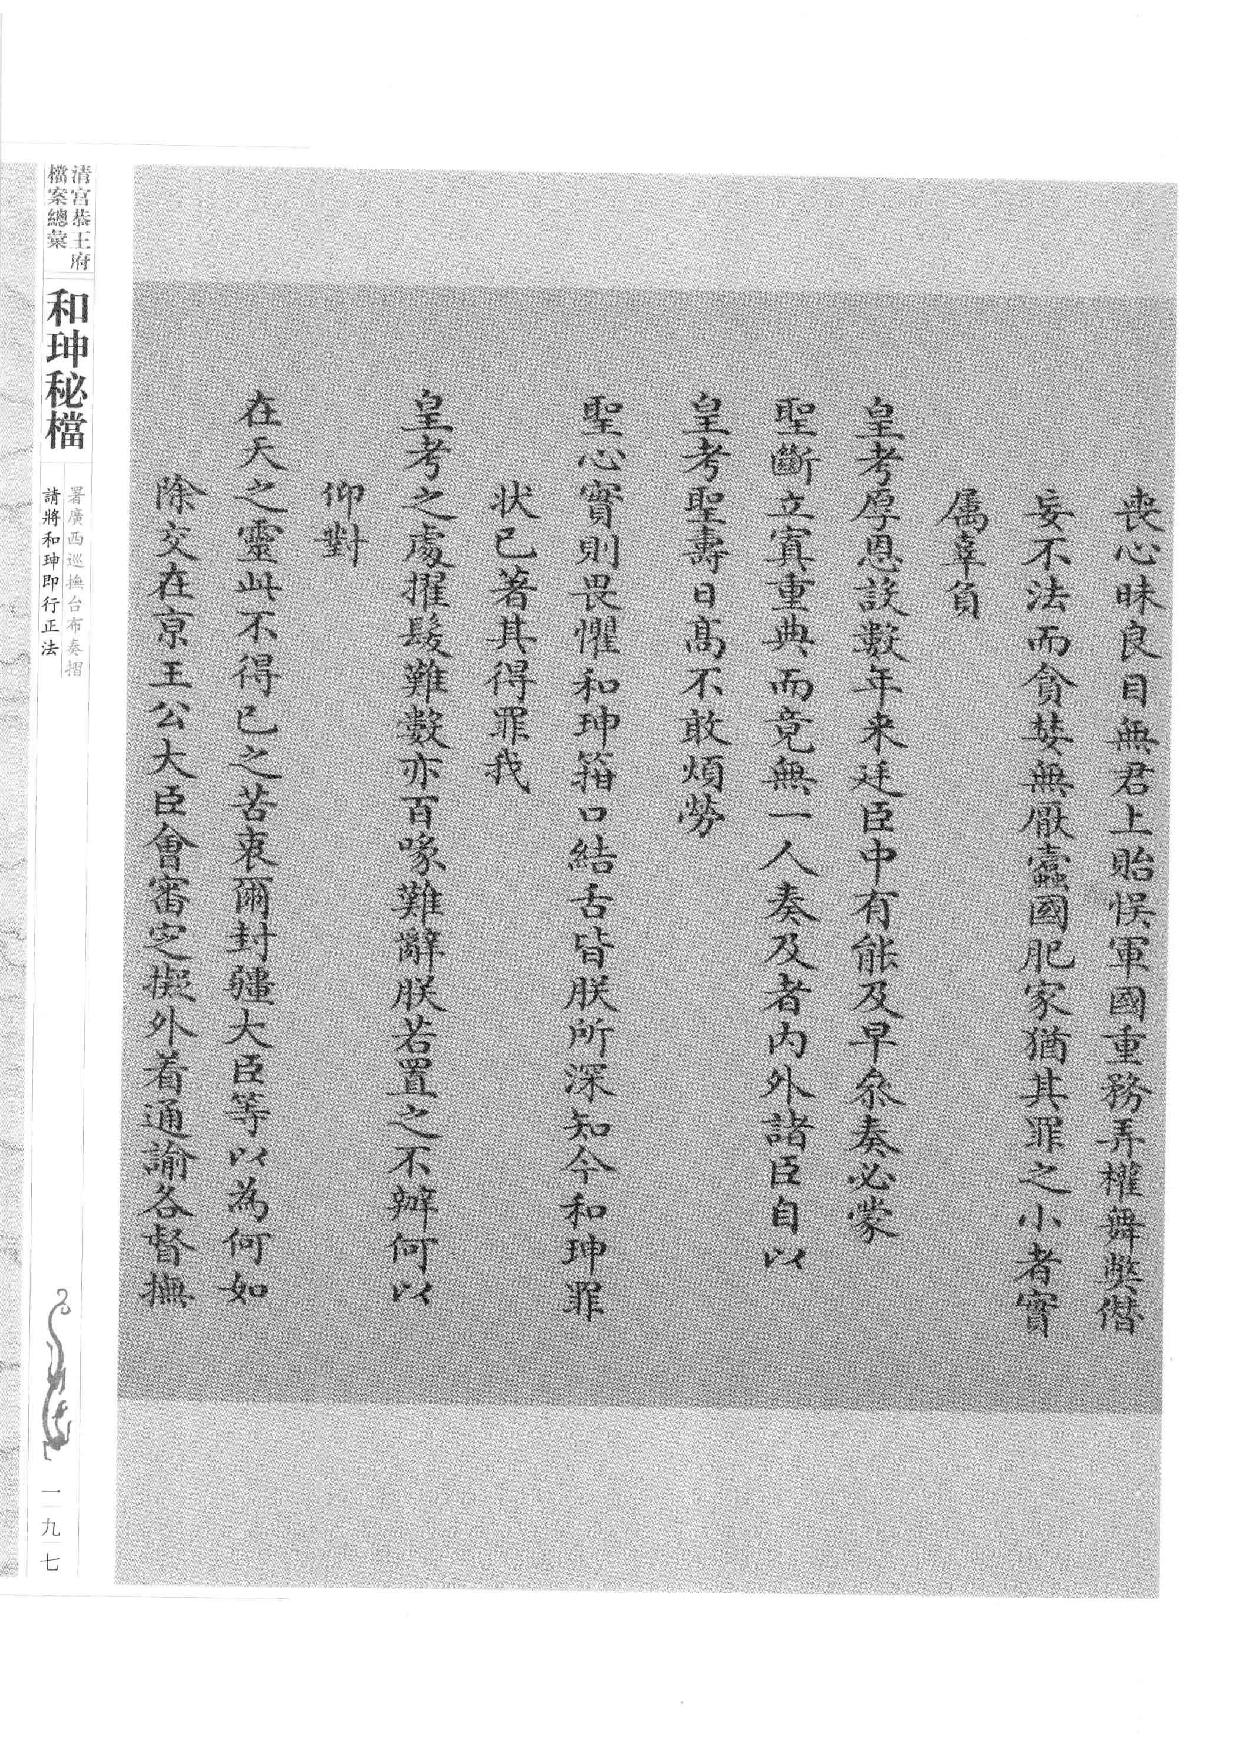 喪心昧良目無君上貽悞軍國重務弄權舞弊僭
妄不法而貪婪無厭蠹國肥家猶其罪之小者實
属辜負
皇考厚恩設數年来廷臣中有能及早叅奏必蒙
聖斷立寘重典而竟無一人奏及者内外諸臣自以
皇考聖壽日髙不敢煩勞
聖心實則畏懼和珅箝口結舌皆朕所深知今和珅罪
状已著其得罪我
皇考之處擢髮難數亦百喙難辭朕若置之不辦何以
仰對
在天之靈此不得已之苦衷爾封疆大臣等以為何如
除交在京王公大臣會審定擬外着通諭各督撫
清宮恭王府
檔案總彙
和珅秘檔
署廣西巡撫台布奏摺
請將和珅即行正法
一九七